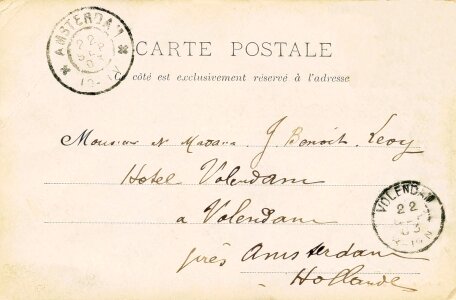 AMSTERDAM
22
CARTE POSTALE
côté est exclusivement réservé à l'adresse
Monsieur et Madame J Benoit-Levy
Hotel Volendam
a Volendam
près Amsterdam
Hollande
VOLENDAM
22